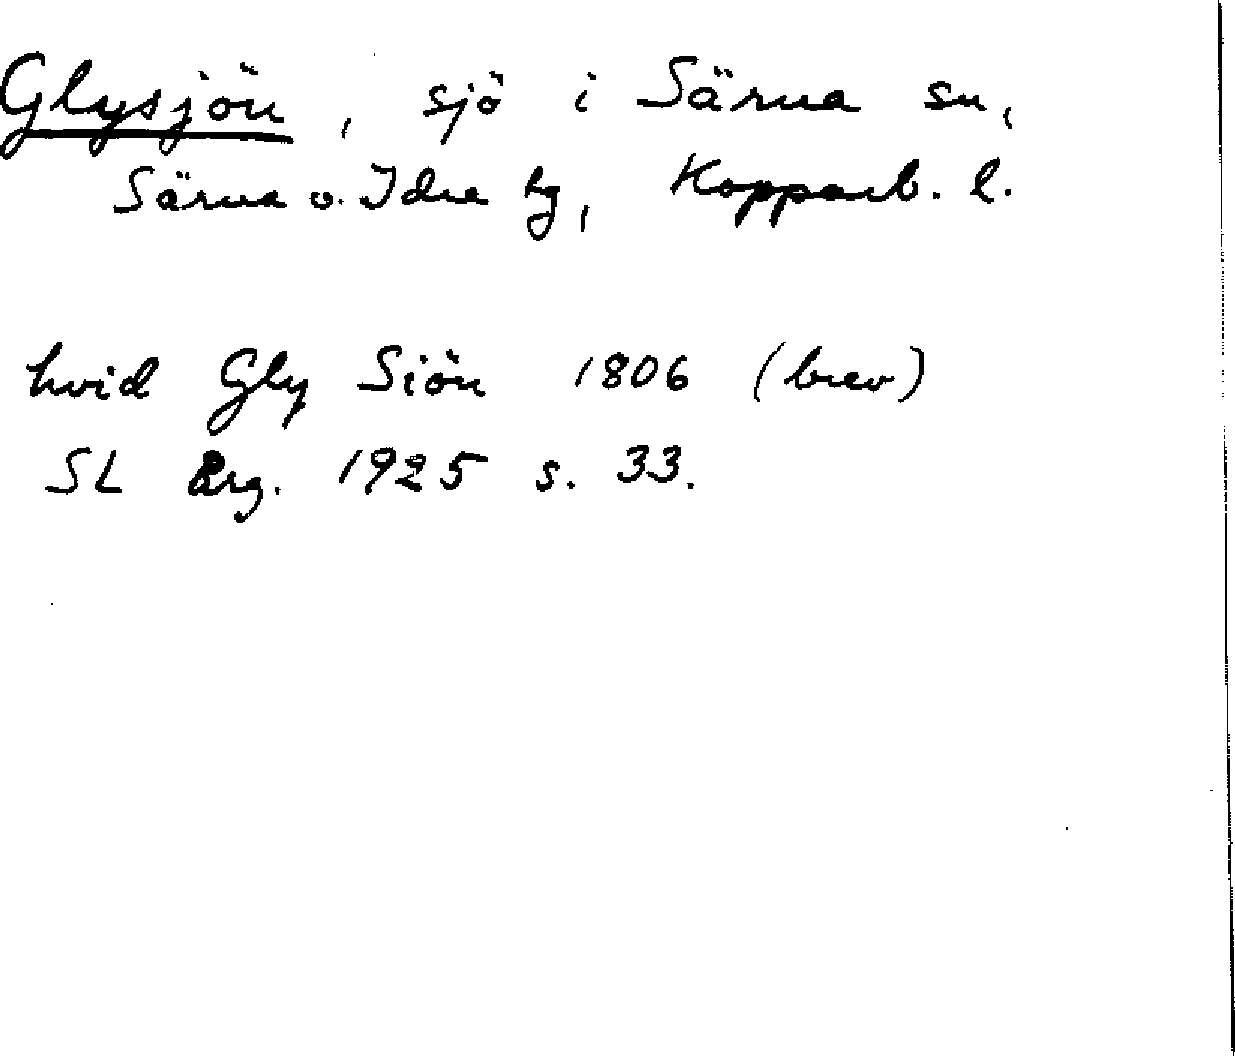 Glysjön, sjö i Särna sn,
Särna o. Idre tg, Kopparb. l.
hvid Gly Siön 1806 (brev)
SL Årg. 1925 s. 33.